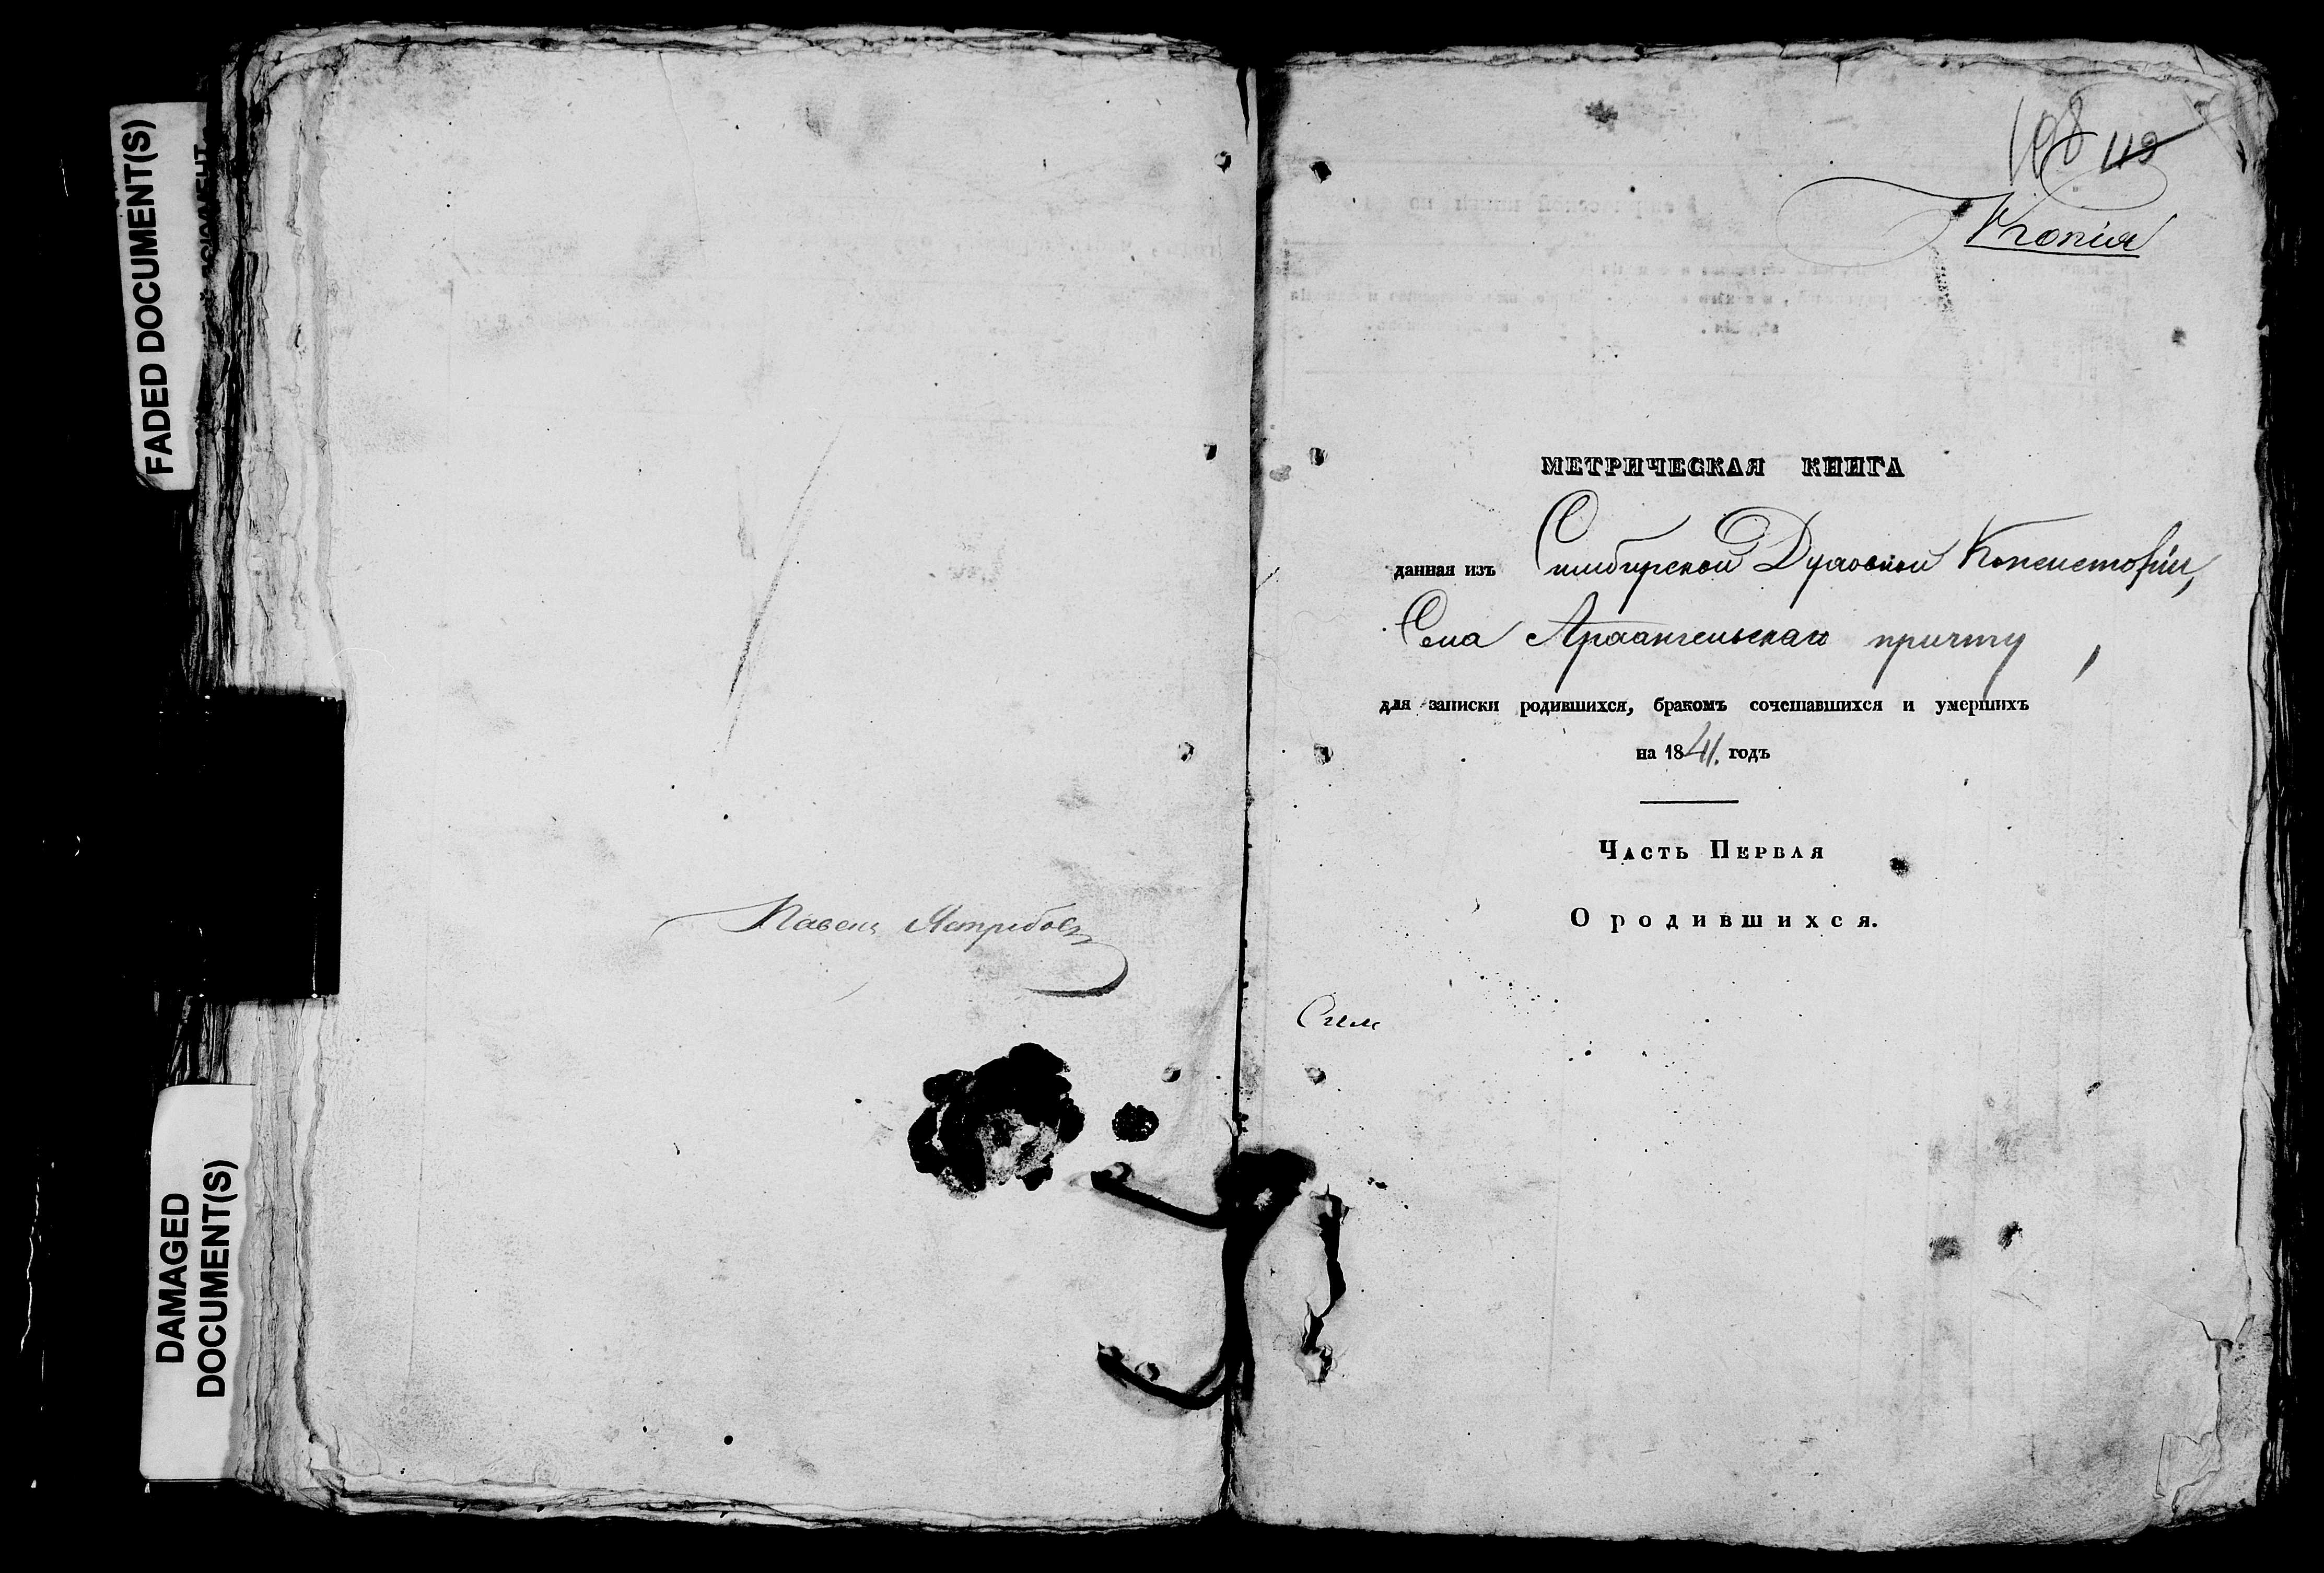 FADED DOCUMENT(S)
DAMAGED
DOCUMENT(S)
Павелъ Ястребовъ
108 119
Копія
МЕТРИЧЕСКАЯ КНИГА
данная изъ Симбирской Духовной Консисторіи,
Села Архангельскаго причту,
для записки родившихся, бракомъ сочетавшихся и умершихъ
на 1841. годъ
Часть Первая
О родившихся.